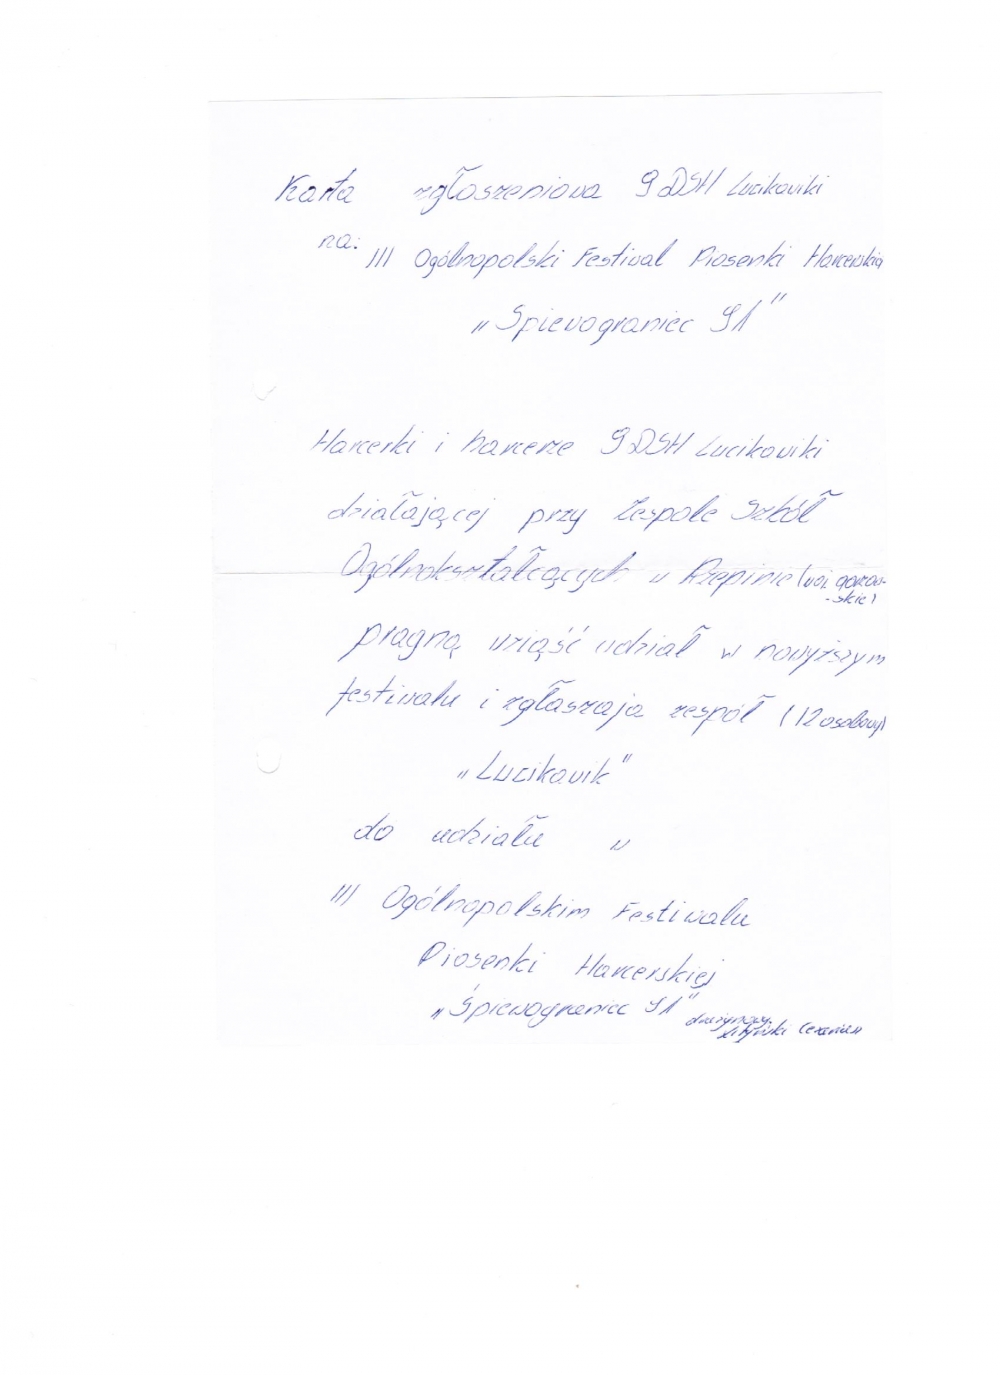 Karta zgłoszeniowa 9 DSH Lucikowiki
na: III Ogólnopolski Festiwal Piosenki Harcerskiej
„Śpiewograniec 91"
Harcerki i harcerze 9 DSH Lucikowiki
działającej przy Zespole Szkół
Ogólnokształcących w Rzepinie (woj. gorzow-
-skie)
pragną wziąść udział w
festiwalu i zgłaszają zespół (12 osobowy)
„Lucikowik"
do udziału w
III Ogólnopolskim Festiwalu
Piosenki Harcerskiej
„Śpiewograniec 91"
drużynowy